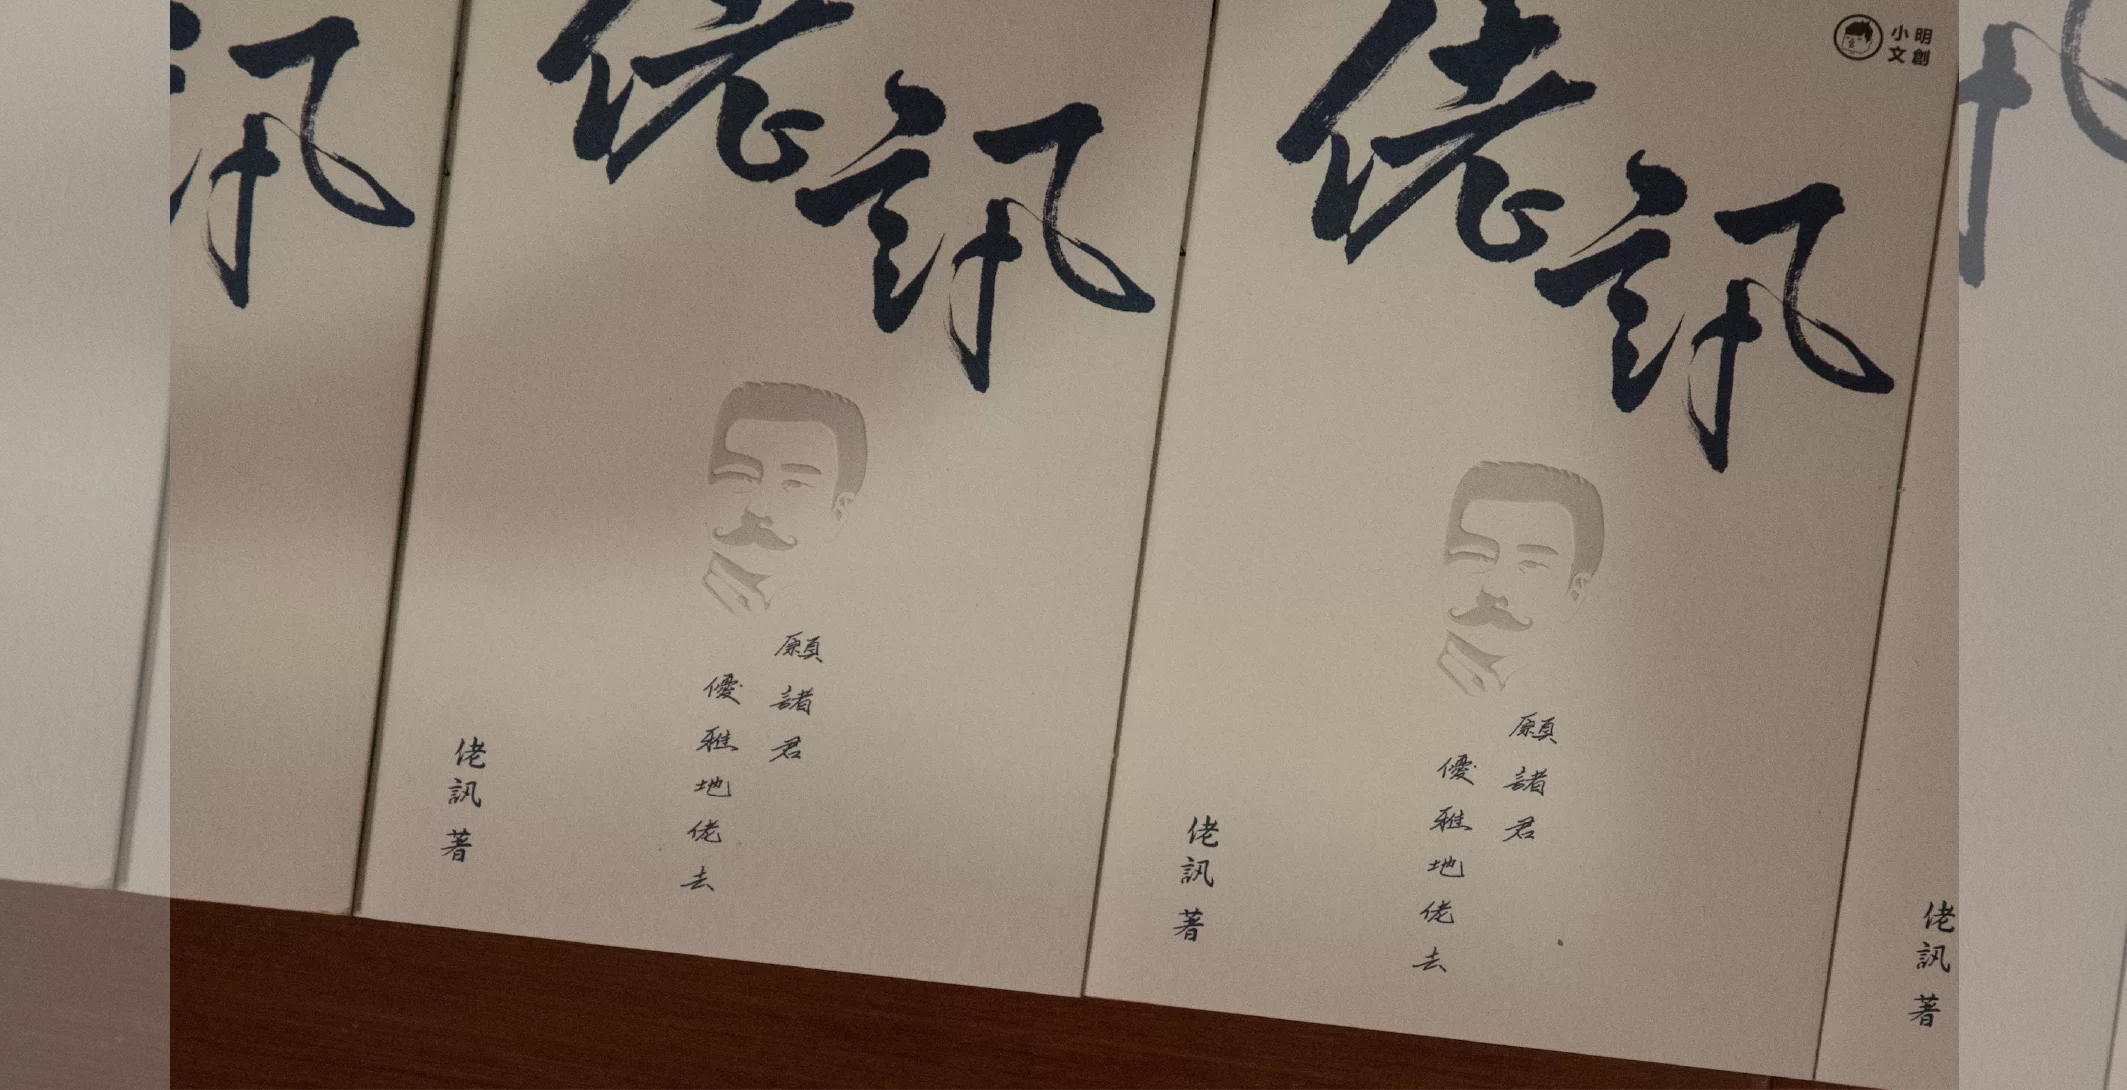 訊
佬訊
願諸君
優雅地佬去
佬訊 著
小明
文創
佬訊
願諸君
優雅地佬去
佬訊 著
佬訊 著